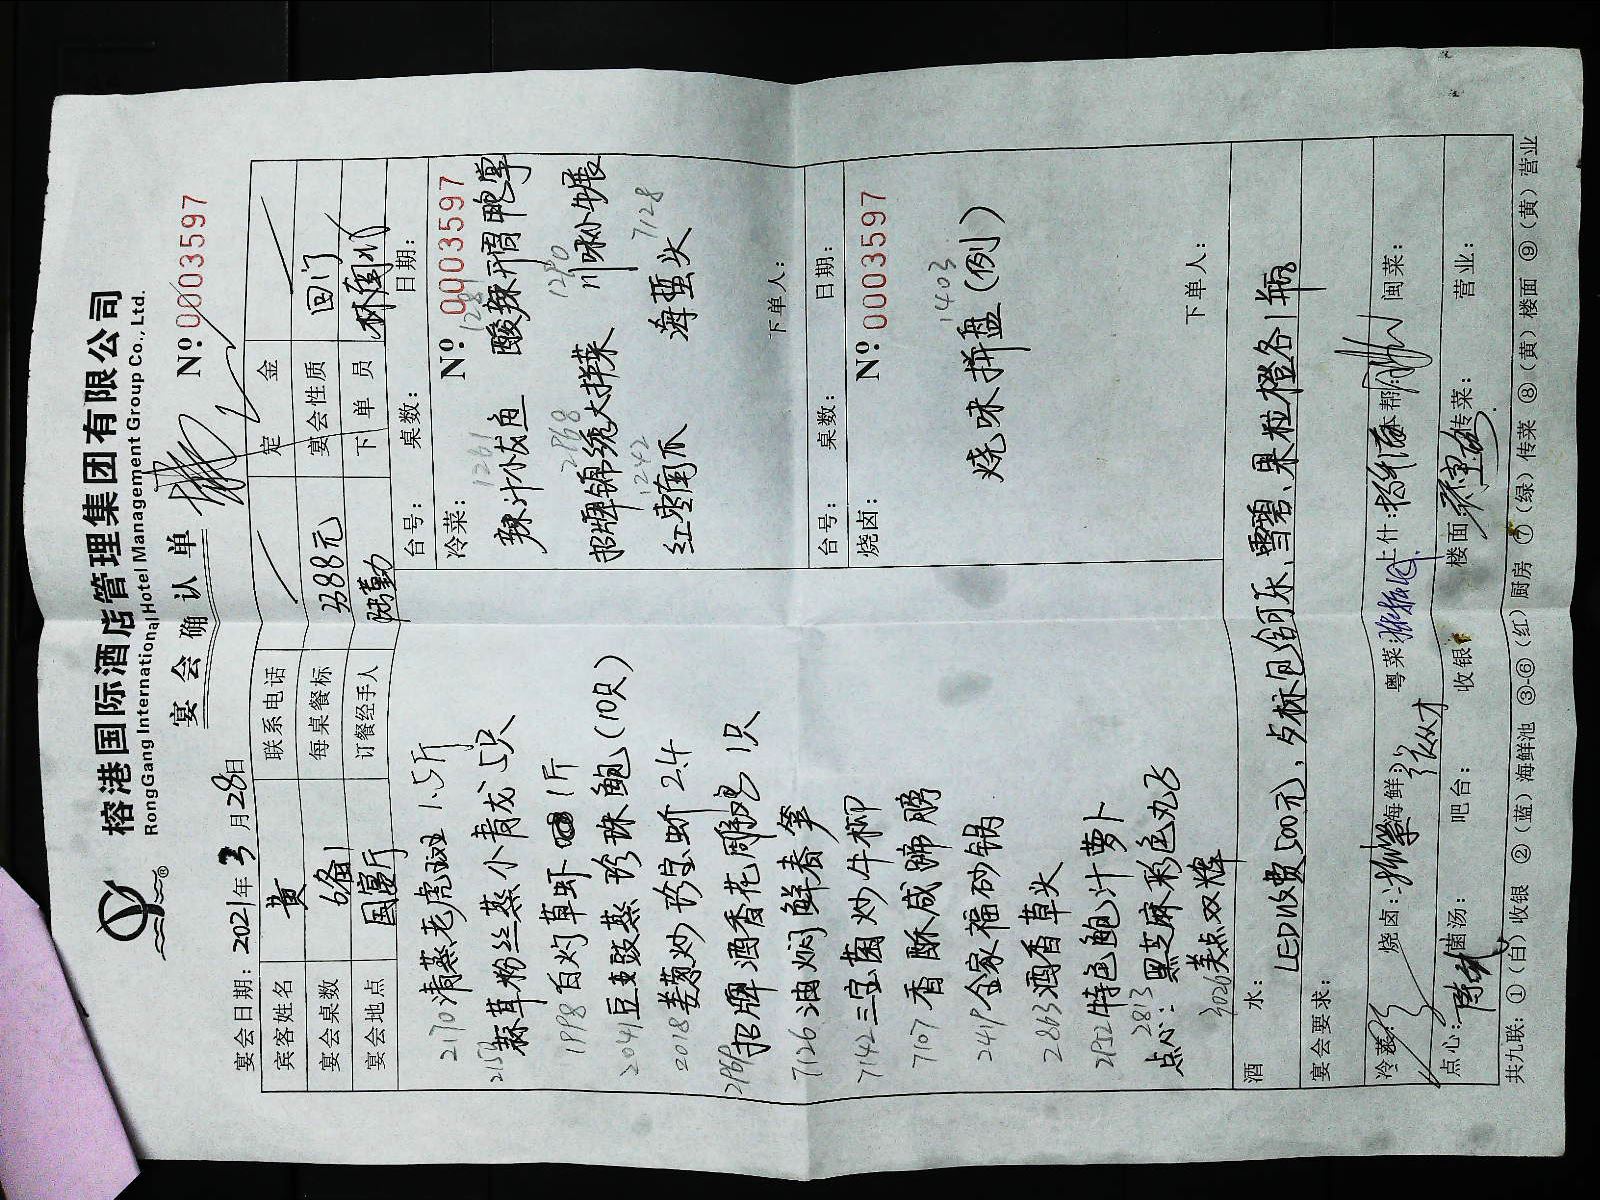 榕港国际酒店管理集团有限公司
RongGang International Hotel Management Group Co., Ltd.
宴会确认单
Nº: 0003597
宴会日期: 2021年3月28日
宾客姓名 黄 联系电话 定金
宴会桌数 6备1 每桌餐标 3388元 宴会性质 回门
宴会地点 国宴厅 订餐经手人 下单员
2170 清蒸老虎斑 1.5斤
2153 蒜茸粉丝蒸小青龙 5只
1998 白灼草虾 1斤
2041 豆豉蒸珍珠鲍(10只)
2018 姜葱炒珍宝蚧 2.4
招牌酒香花雕鸡 1只
7126 油焖鲜春笋
7142 三宝菌炒牛柳
7107 香酥咸蹄膀
2419 金家福砂锅
2863 酒香草头
特色鲍汁萝卜
2813
点心: 黑芝麻彩色丸子
3020 美点双辉
台号: 桌数: 日期:
冷菜: Nº: 0003597
1261
辣汁小黄鱼 酸辣开胃鸭掌
2868 1290
招牌锦绣大拌菜 川味小牛展
1242 7128
红枣南瓜 海蜇头
下单人:
台号: 桌数: 日期:
烧卤: Nº: 0003597
1403
烧味拼盘(例)
下单人:
酒水: LED收费500元, 夕标包含可乐、雪碧、果粒橙各1瓶
宴会要求:
冷菜: 烧卤: 海鲜: 粤菜: 上什: 本帮: 闽菜:
点心: 菌汤: 吧台: 收银: 楼面: 传菜: 营业:
共九联: ①(白)收银 ②(蓝)海鲜池 ③-⑥(红)厨房 ⑦(绿)传菜 ⑧(黄)楼面 ⑨(黄)营业